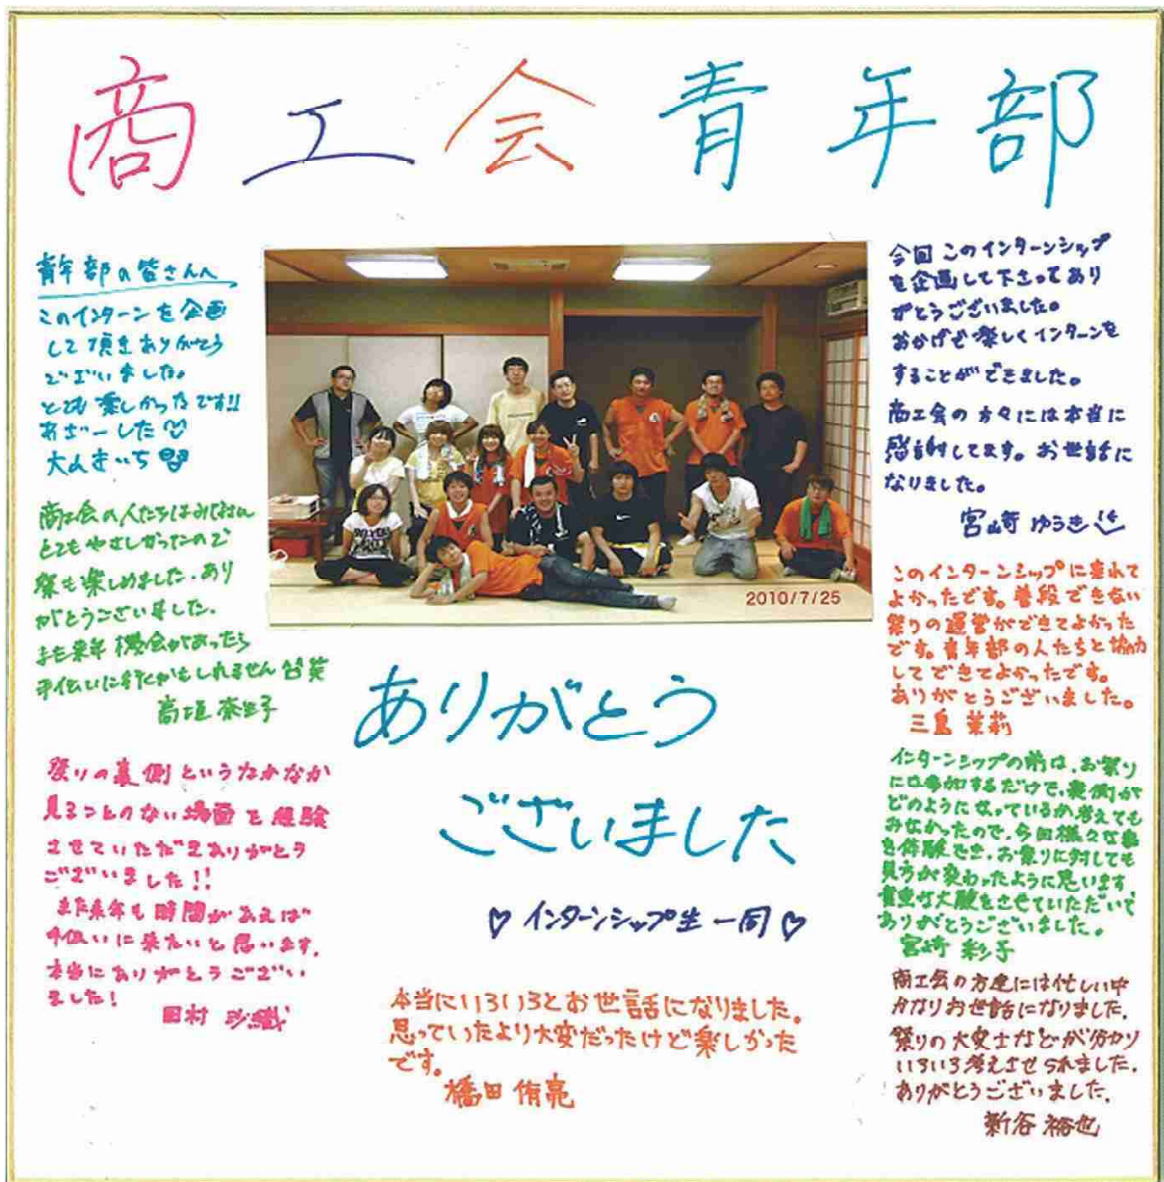 商工会青年部
青年部の皆さんへ
このインターンを企画
して頂きありがとう
ございました。
とても楽しかったです!!
あざーした♡
商工会の人たちはみなさん
とてもやさしかったので
祭も楽しめました。あり
がとうございました。
また来年機会があったら
手伝いに行くかもしれません 笑
高垣 奈生子
祭りの裏側というなかなか
見ることのない場面を経験
させていただきありがとう
ございました!!
また来年も時間があえば
手伝いに来たいと思います。
本当にありがとうござい
ました!
田村 沙織
2010/7/25
ありがとう
ございました
♡インターンシップ生一同♡
本当にいろいろとお世話になりました。
思っていたより大変だったけど楽しかった
です。
橋田 侑亮
今回このインターンシップ
を企画して下さってあり
がとうございました。
おかげで楽しくインターンを
することができました。
商工会の方々には本当に
感謝してます。お世話に
なりました。
宮崎 ゆうき
このインターンシップに来れて
よかったです。普段できない
祭りの運営ができてよかった
です。青年部の人たちと協力
してできてよかったです。
ありがとうございました。
三島 茉莉
インターンシップの前は、お祭り
には参加するだけで、裏側が
どのようになっているか考えても
みなかったので、今回様々な事
を体験でき、お祭りに対しても
見方が変わったように思います。
貴重な体験をさせていただいて
ありがとうございました。
宮崎 彩子
商工会の方達には忙しい中
かなりお世話になりました。
祭りの大変さなどが分かり
いろいろ考えさせられました。
ありがとうございました。
新谷 裕也